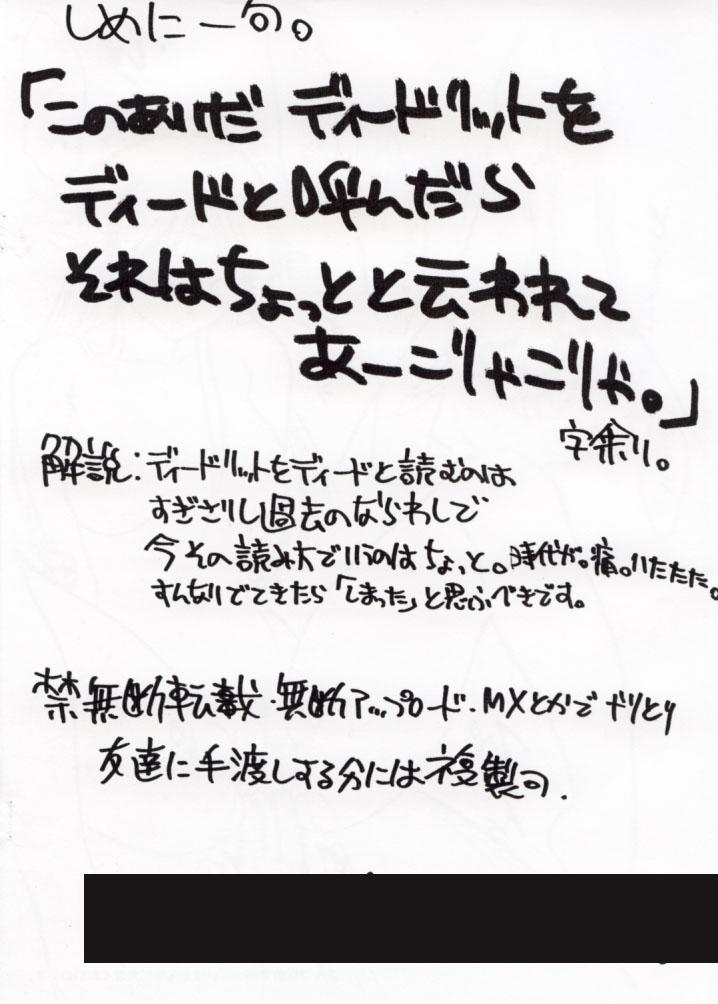 しめに一句。
「このあいだ ディードリットを
ディードと呼んだら
それはちょっとと云われて
あーこりゃこりゃ。」
字余り。
解説：ディードリットをディードと読むのは
すぎさりし過去のならわしで
今その読み方でいうのはちょっと。時代が。痛。いたたた。
すんなりでてきたら「しまった」と思ふべきです。
禁無断転載・無断アップロード・MXとかでやりとり
友達に手渡しする分には複製可.